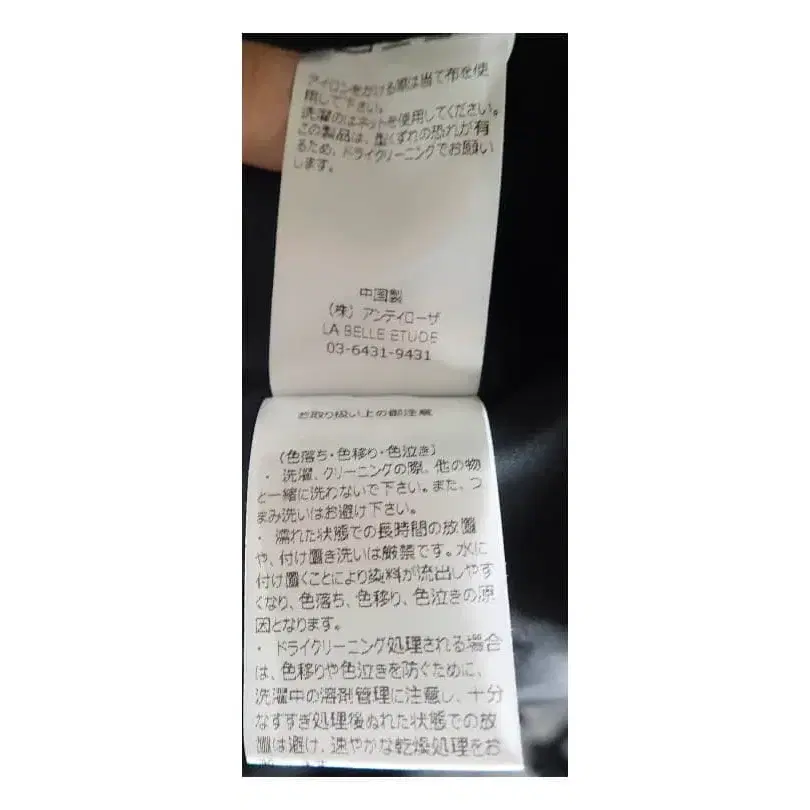 アイロンをかける際は当て布を使
用して下さい。
洗濯のはネットを使用してください。
この製品は、型くずれの恐れが有
るため、ドライクリーニングでお願い
します。
中国製
（株）アンティローザ
LA BELLE ETUDE
03-6431-9431
お取り扱い上の御注意
（色落ち・色移り・色泣き）
・ 洗濯、クリーニングの際、他の物
と一緒に洗わないで下さい。また、つ
まみ洗いはお避け下さい。
・ 濡れた状態での長時間の放置
や、付け置き洗いは厳禁です。水に
付け置くことにより染料が流出しやす
くなり、色落ち、色移り、色泣きの原
因となります。
・ ドライクリーニング処理される場合
は、色移りや色泣きを防ぐために、
洗濯中の溶剤管理に注意し、十分
なすすぎ処理後ぬれた状態での放
置は避け、速やかな乾燥処理をお